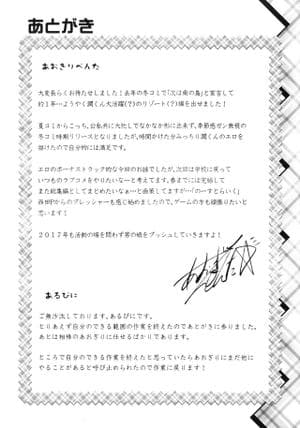 あとがき
あおきりぺんた
大変長らくお待たせしました！去年の冬コミで「次は南の島」と宣言して
約1年…ようやく潤くん大活躍(?)のリゾート(?)編を出せました！
夏コミから、公私共に大忙しでなかなか形に出来ず、季節感ガン無視の
冬コミ時期リリースとなりましたが、時間かけた分みっちり潤くんのエロを
描けたので自分的には満足です。
エロのボーナストラック的な今回のお話でしたが、次回は学校に戻って
いつものラブコメをやりたいなぁーと考えてます。春までには完結して
また総集編としてまとめたいなぁ…と画策してますが「のーすとらいく」
からのプレッシャーも感じ始めましたので、ゲームの方も頑張りたいと
思います！
2017年も活動の場を問わず
の娘をプッシュしていきますよ！
あるぴに
ご無沙汰しております。あるぴにです。
とりあえず自分のできる範囲の作業を終えたのであとがきに参りました。
あとは相棒のあおぎりに任せるばかりであります。
ところで自分のできる作業を終えたと思っていたらあおぎりにまだ他に
やることがあると呼び止められたので作業に戻ります！